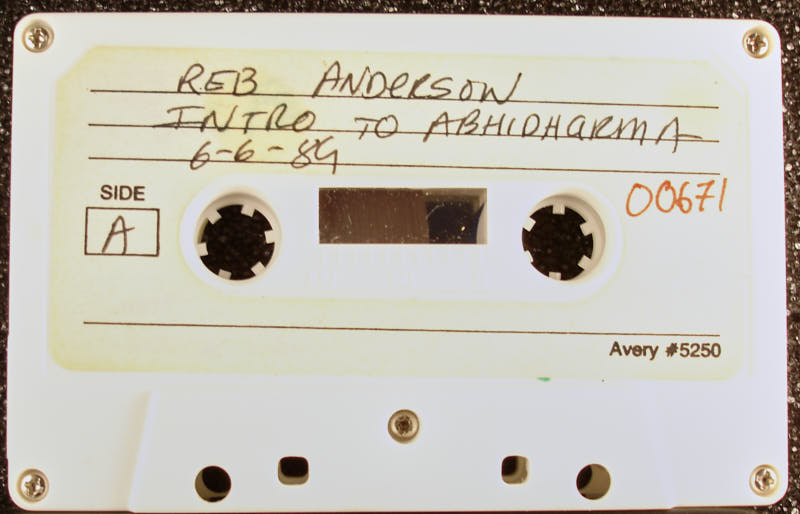 REB ANDERSON
INTRO TO ABHIDHARMA
6-6-89
SIDE
A
00671
Avery #5250